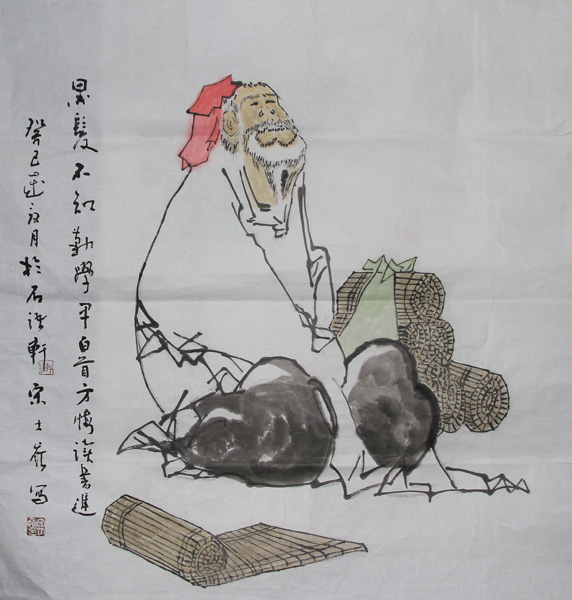 黑髮不知勤學早白首方悔讀書遲
癸巳歲月於石軒宋士寫